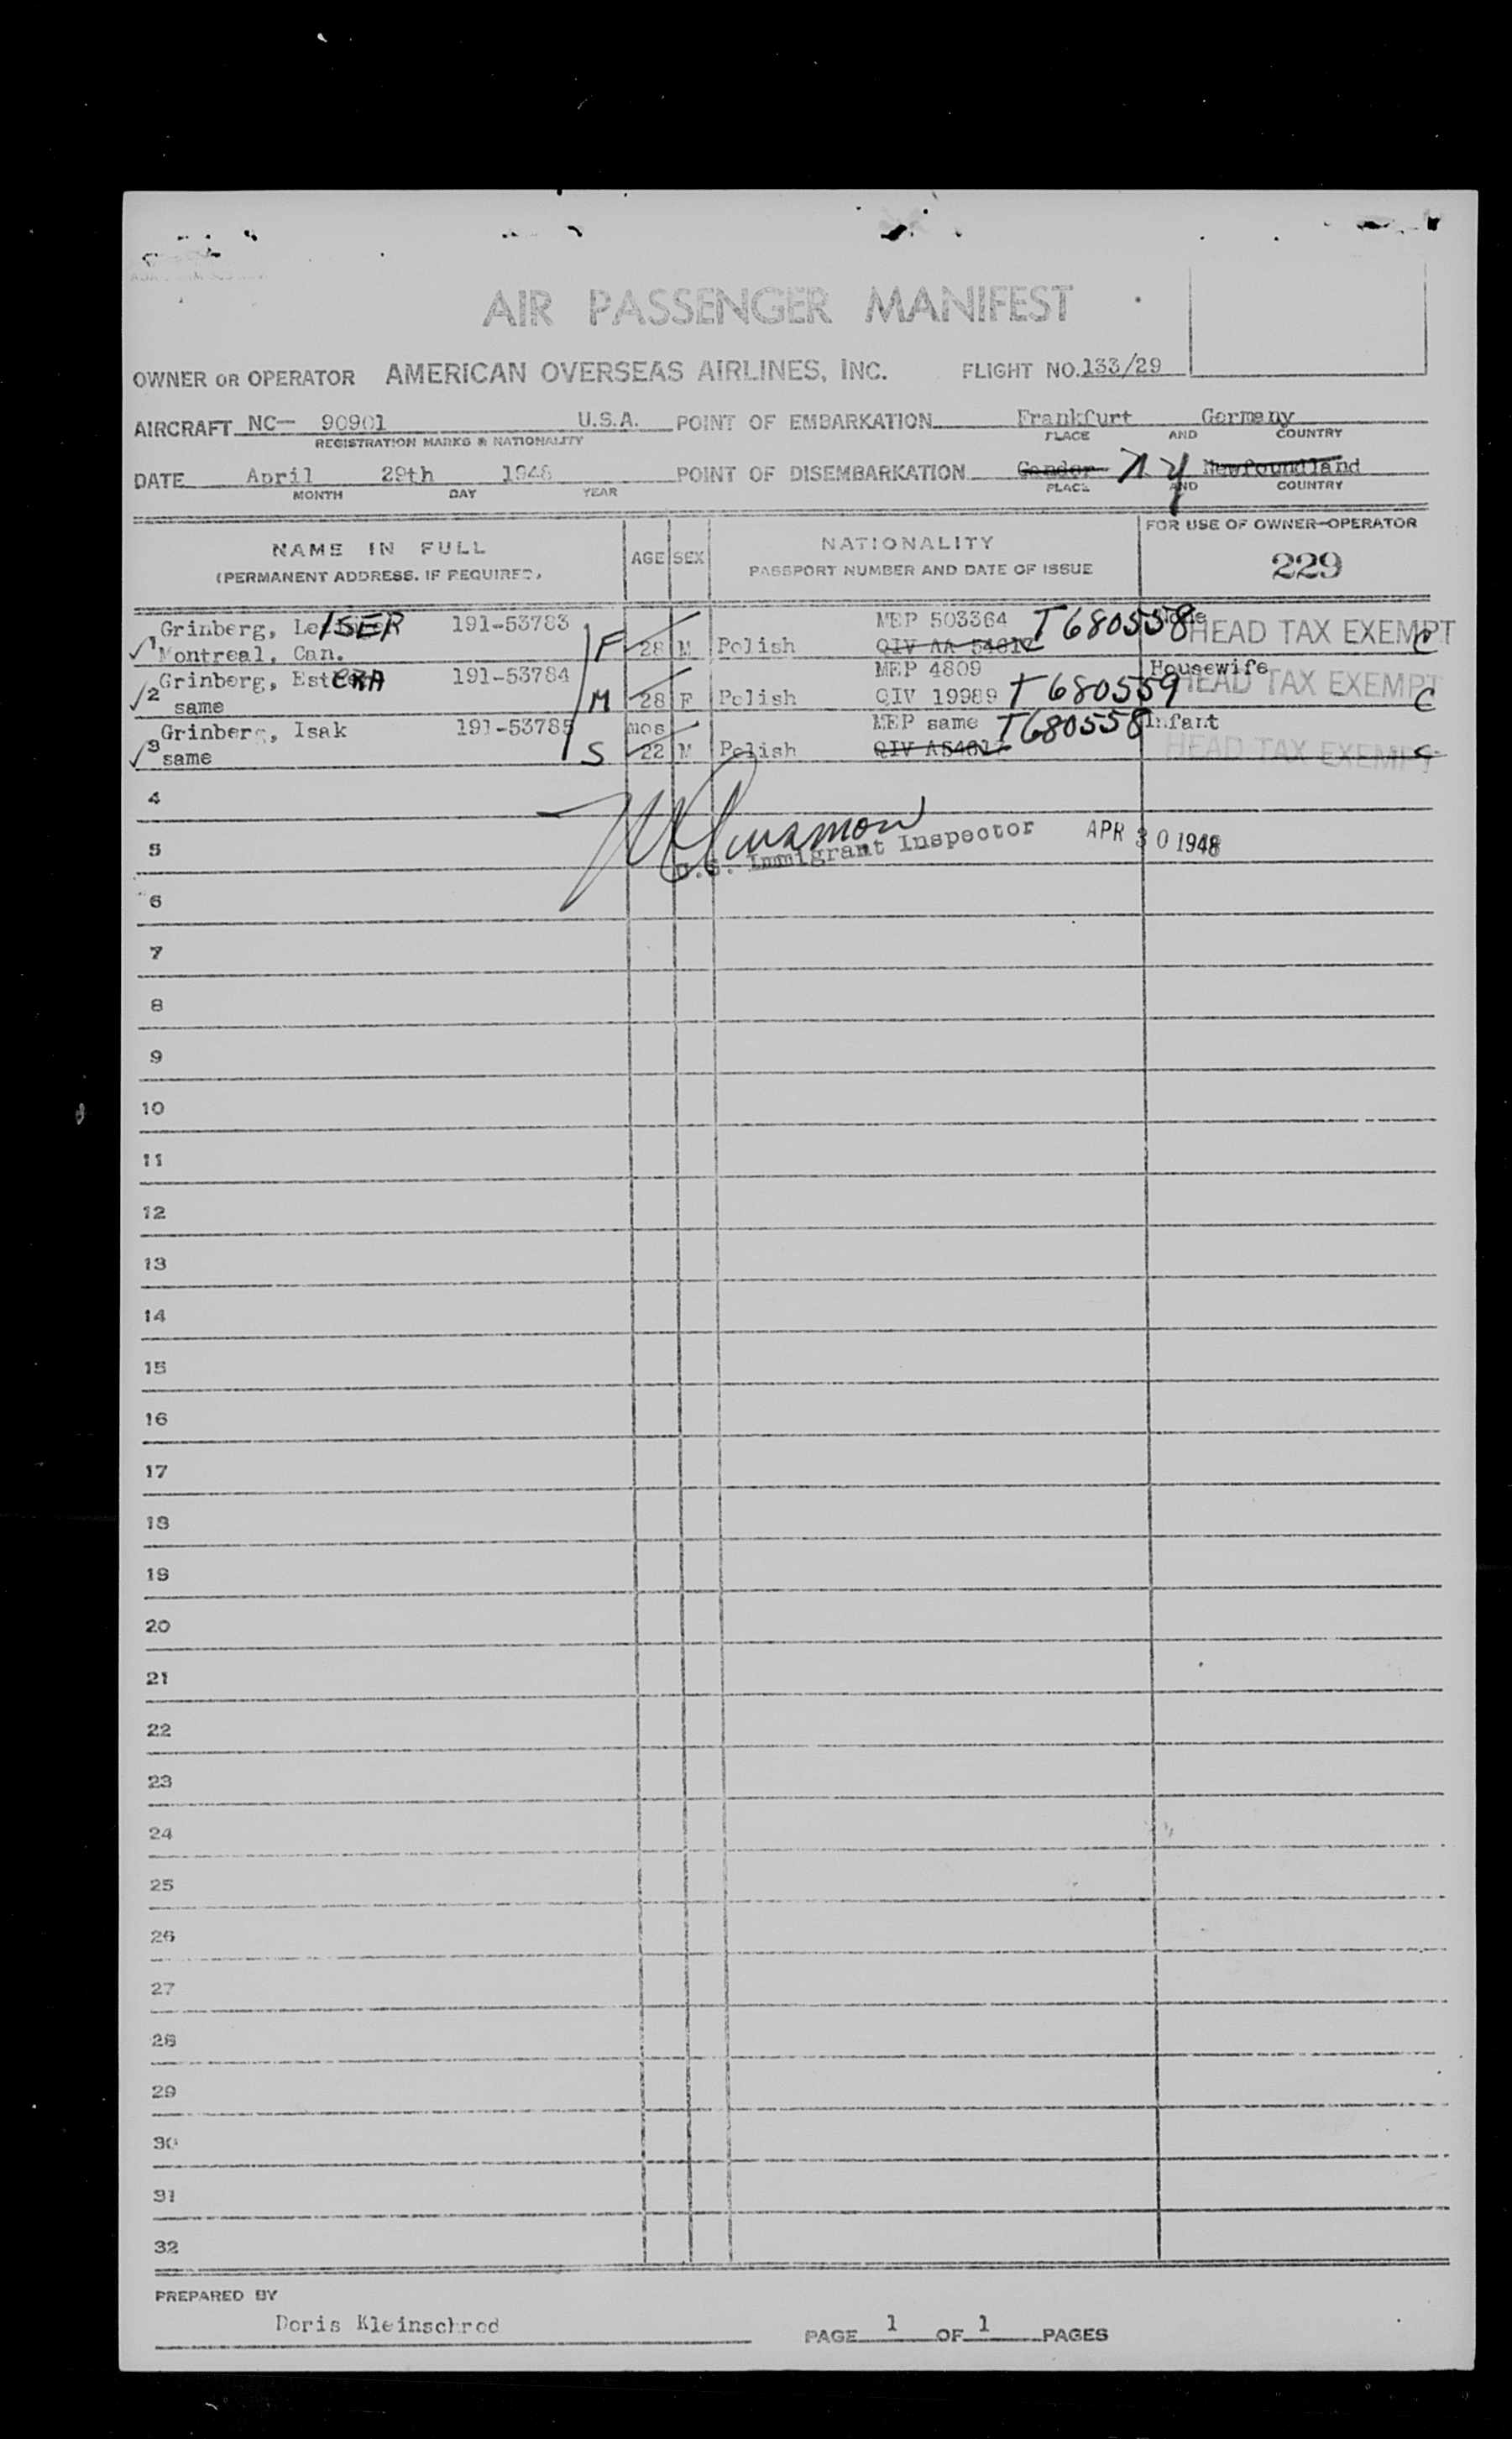 AIR PASSENGER MANIFEST
OWNER OR OPERATOR AMERICAN OVERSEAS AIRLINES, INC. FLIGHT NO. 133/29
AIRCRAFT NC— 90901 U.S.A. POINT OF EMBARKATION Frankfurt Germany
REGISTRATION MARKS & NATIONALITY PLACE AND COUNTRY
DATE April 29th 1948 POINT OF DISEMBARKATION Gander NY Newfoundland
MONTH DAY YEAR PLACE AND COUNTRY
NAME IN FULL
(PERMANENT ADDRESS, IF REQUIRED)
AGE SEX
NATIONALITY
PASSPORT NUMBER AND DATE OF ISSUE
FOR USE OF OWNER-OPERATOR
229
Grinberg, ISER 191-53783 MEP 503364 T680558 None HEAD TAX EXEMPT
1 Montreal, Can. F 28 M Polish QIV AA C
Grinberg, EstERA 191-53784 MEP 4809 Housewife HEAD TAX EXEMPT
2 same M 28 F Polish QIV 19989 T680559 C
Grinberg, Isak 191-53785 mos MEP same T680558 Infant
3 same S 22 M Polish QIV HEAD TAX EXEMPT C
4
U.S. Immigrant Inspector APR 30 1948
5
6
7
8
9
10
11
12
13
14
15
16
17
18
19
20
21
22
23
24
25
26
27
28
29
30
31
32
PREPARED BY
Doris Kleinschrod
PAGE 1 OF 1 PAGES